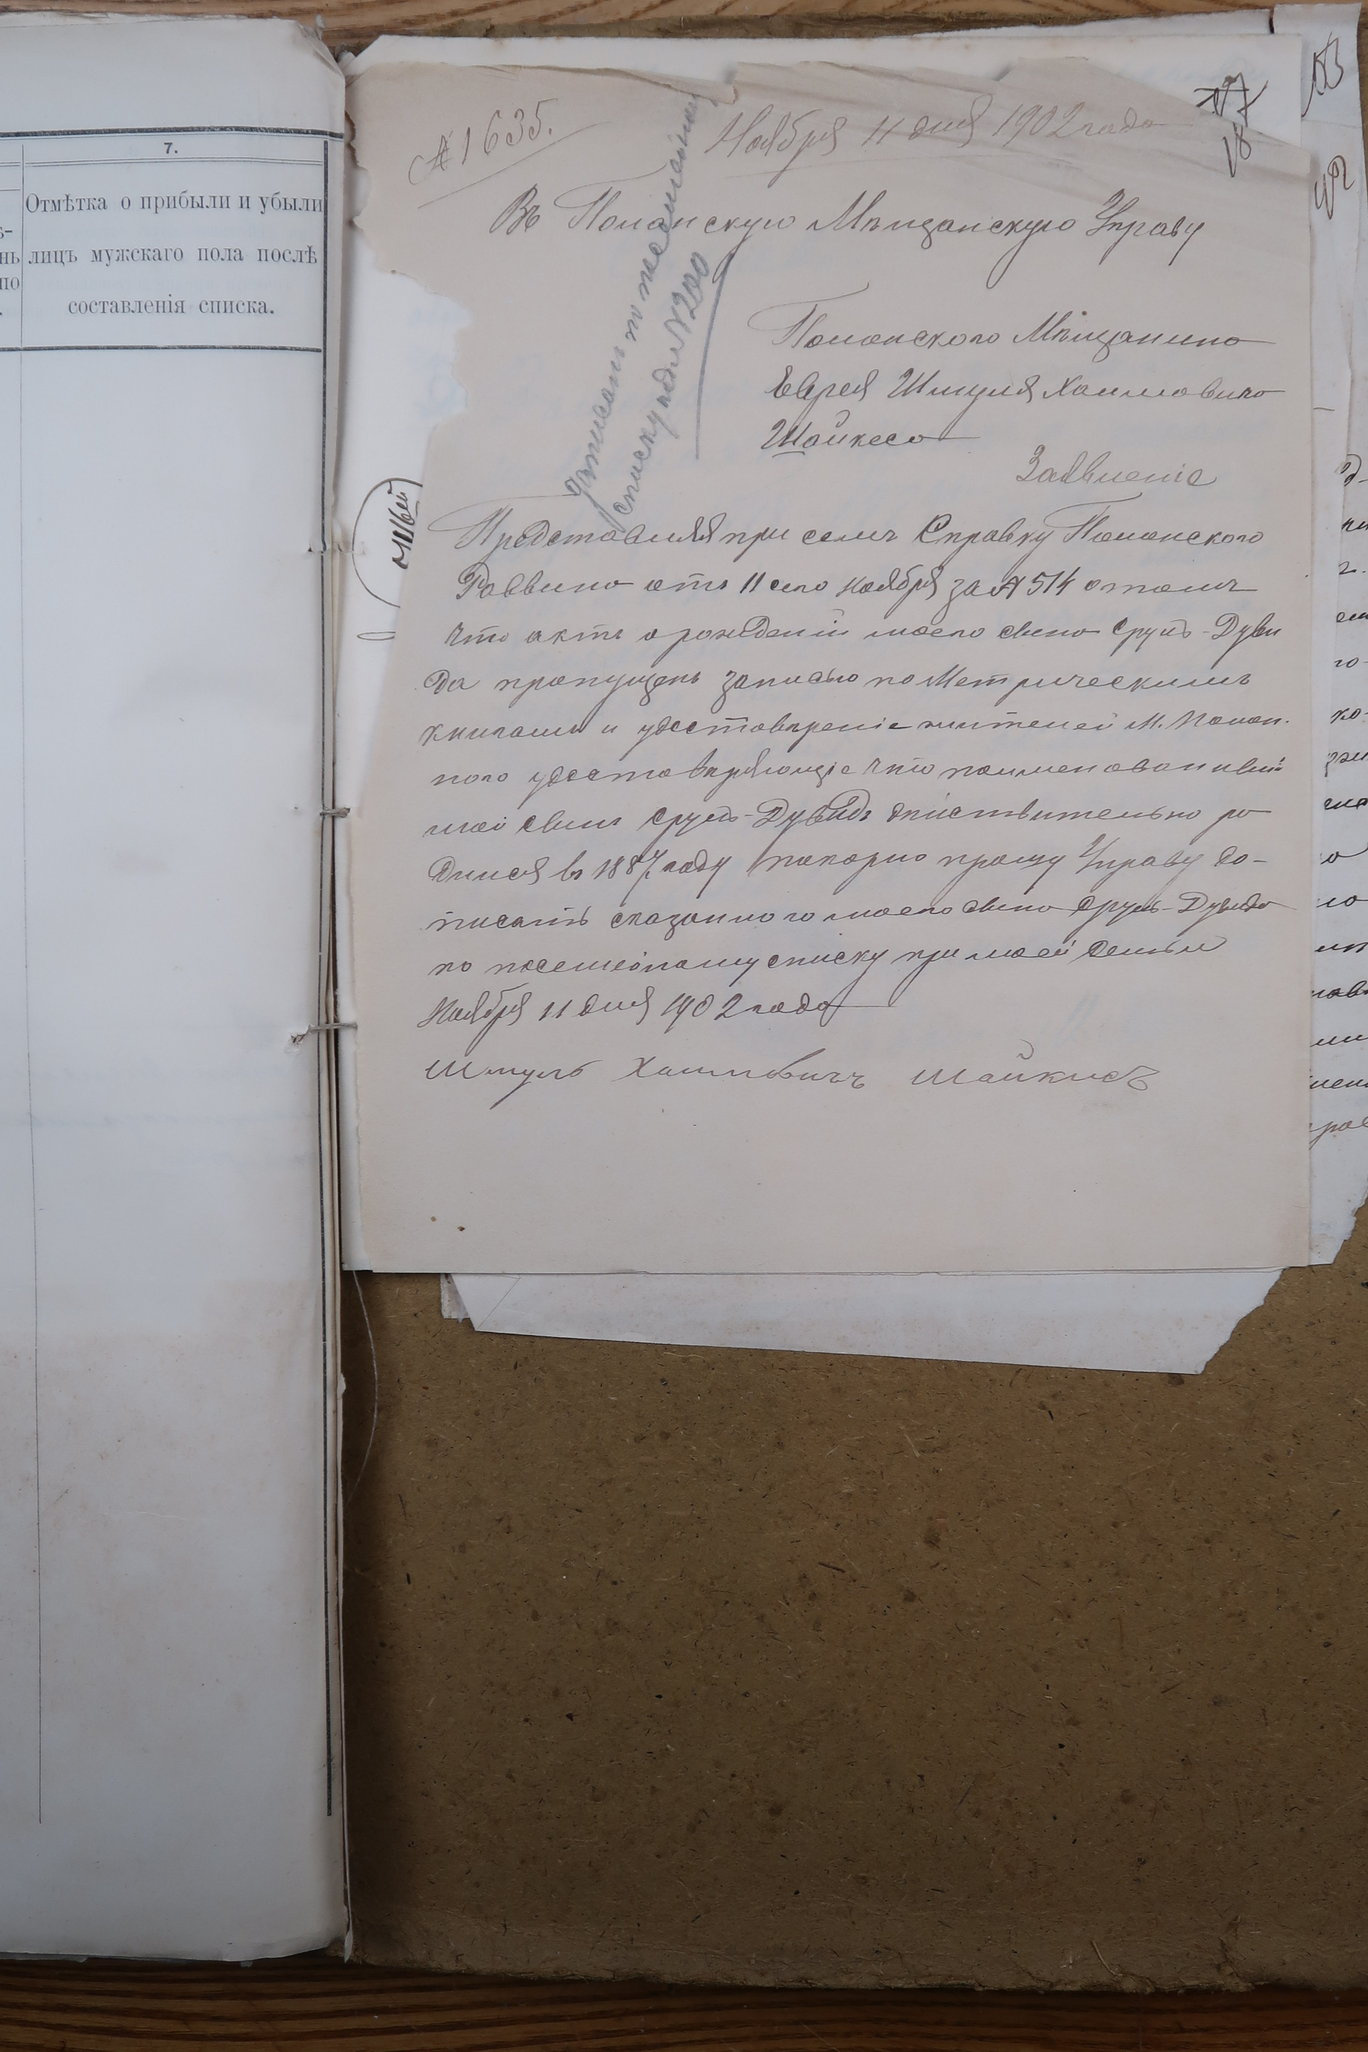 7.
Отмѣтка о прибыли и убыли
лицъ мужскаго пола послѣ
составленія списка.
№ 1635.
Ноября 11 дня 1902 года
17
18
Въ Паланскую Мѣщанскую Управу
Записанъ по посемейному
списку подъ № 200
Паланского Мѣщанина
Еврея Шмуля Хаимовича
Шайкеса
Заявленіе
Представляя при семъ Справку Паланского
Раввина отъ 11 сего Ноября за № 514 о томъ
что актъ о рожденіи моего сына Сруль-Дуви
да пропущенъ записью по Метрическимъ
книгамъ и удостовѣреніе жителей М.
удостовѣряющіе что поименованный
мой сынъ Сруль-Дувидъ дѣйствительно ро
дился въ 1887 году покорно прошу Управу до-
писать сказанного моего сына Сруль-Дувида
по посемейному списку при моей семьѣ
Ноября 11 дня 1902 года
Шмуль Хаимовичъ Шайкисъ